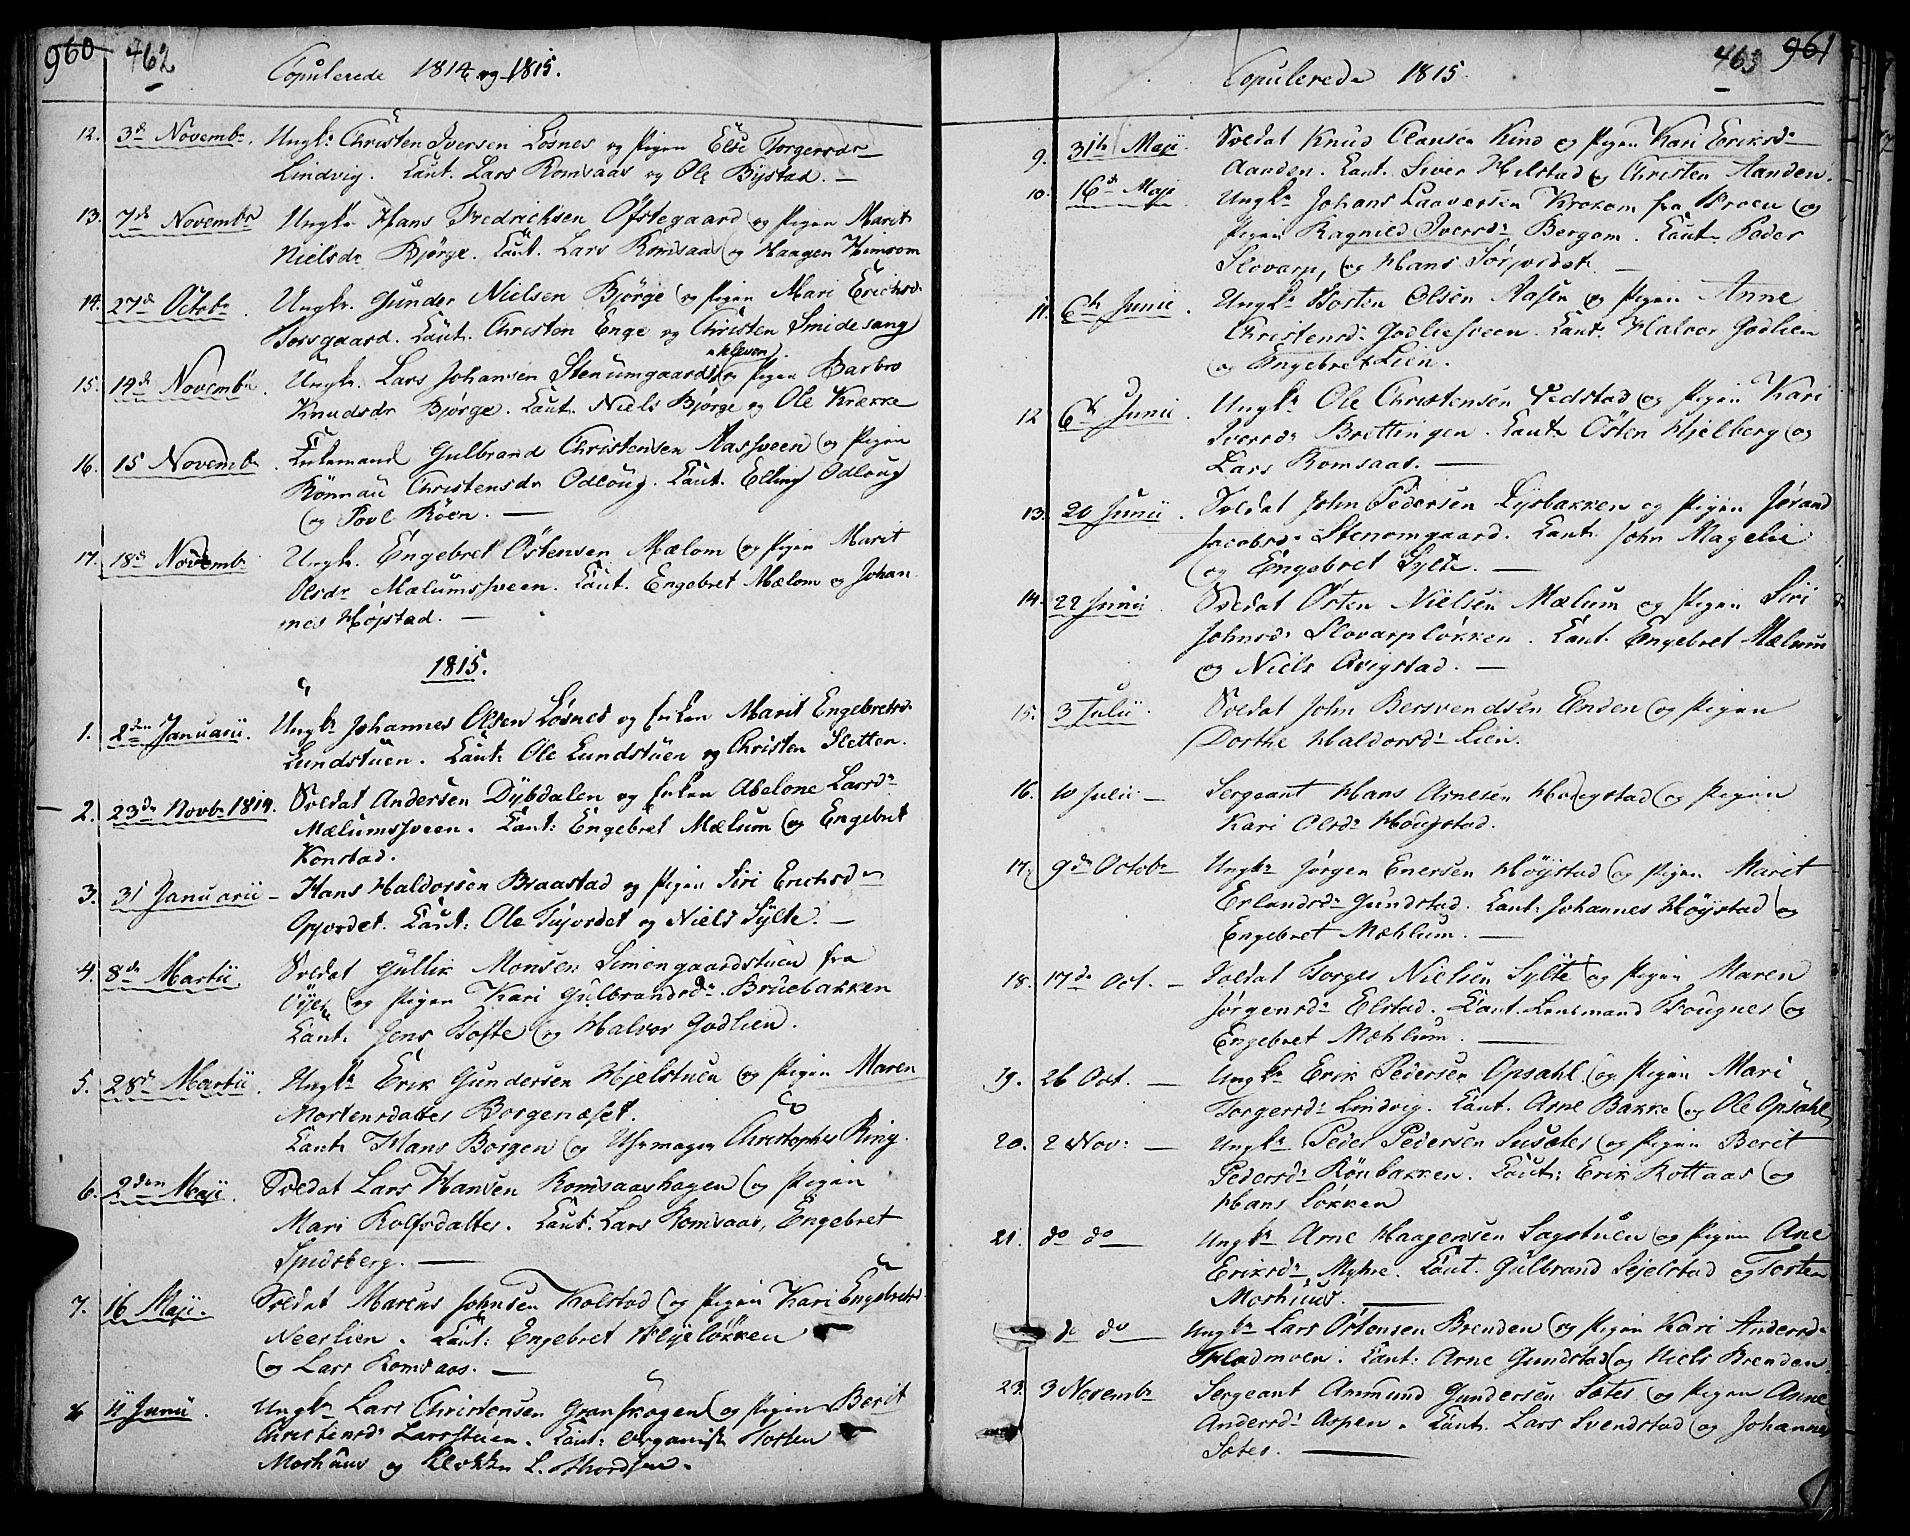 960 462
Copulerede 1814 og 1815.
12. 3d Novemb. Ungk. Christen Iversen Løsnes og Pigen Else Torgersdr
Lindvig. Caut. Lars Romsaas og Ole Bystad. —
13. 7de Novembr Ungk. Hans Fredrichsen Øfstegaard og Pigen Marit
Nielsdr Bjørge. Caut. Lars Romsaas og Haagen Humsom
14. 27de Octobr. Ungk. Gunder Nielsen Bjørge og Pigen Mari Erichsdr
Forsgaard. Caut. Christen Enge og Christen Smidesang
kleven
15. 14de Novembr. Ungk. Lars Johansen Stenumgaards og Pigen Barbro
Knudsdr Bjørge. Caut. Niels Bjørge og Ole Krække
16. 15 Novembr. Enkemand Gulbrand Christensen Aassveen og Pigen
Rönnau Christensdr Odloug. Caut. Elling Odloug
og Povl Röen. —
17. 18d Novembr Ungk. Engebret Östensen Mælom og Pigen Marit
Olsdr Mælumssveen. Caut. Engebret Mælom og Johan
nes Højstad. —
1815.
1. 2den Januarii. Ungk. Johannes Olsen Løsnes og Enken Marit Engebretsd.
Lundstuen. Caut. Ole Lundstuen og Christen Sletten.
2. 23de Novbr 1814. Soldat Andersen Dybdalen og Enken Abelone Larsdr
Mælumssveen. Caut: Engebret Mælum og Engebret
Konstad.
3. 31 Januarii — Hans Haldorsen Braastad og Pigen Siri Erichsdr
Gjordet. Caut: Ole Gjordet og Niels Sylte. —
4. 8de Martii Soldat Gullik Monsen Simengaardstuen fra
Öjer og Pigen Kari Gulbrandsdr. Bruebakken
Caut. Jens Tofte og Halvor Godlien.
5. 28d Martii. Ungk. Erik Gundersen Hjelstuen og Pigen Maren
Mortensdatter Borgenæset.
Caut. Hans Borgen og Uhrmager Christopher Ring.
6. 2den Maji. Soldat Lars Hansen Romsaashagen og Pigen
Mari Rolfsdatter. Caut. Lars Romsaas, Engebret
Spidsberg. —
7. 16 Maji. Soldat Marcus Johnsen Kolstad og Pigen Kari Engebretsd.
Neerlien. Caut: Engebret Flyeløkken
og Lars Romsaas. —
8 11 Junii. Ungk. Lars Christensen Granskogen og Pigen Berit
Christensdr Larsstuen. Caut: Organist Torsten
Moshuus og Klokker L. Thordsen.
463 961
Copulerede 1815.
9. 31te Maji. Soldat Knud Olausen Kind og Pigen Kari Eriksdr
Aanden. Caut. Siver Hilstad og Christen Aanden.
10. 16d Maji Ungk. Johans Laaversen Krokom fra Froen og
Pigen Ragnild Iversdr Bergom. Caut. Peder
Slovarp, og Hans Sörjordet —
11. 6te Junii. Ungk. Torsten Olsen Aasen og Pigen Anne
Christensdr Godliesveen. Caut. Halvor Godlien
og Engebret Lien.
12 6te Junii. Ungk. Ole Christensen Vedstad og Pigen Kari
Iversdr Brettingen. Caut. Østen Hjelberg og
Lars Romsaas. —
13. 20 Junii. Soldat John Pedersen Lysbakken og Pigen Jørand
Jacobsdr Stenomgaard. Caut. John Magelie
og Engebret Sylte. —
14. 22 Junii Soldat Østen Nielsen Mælum og Pigen Siri
Johnsdr Slovarpløkken. Caut. Engebret Mælum
og Niels Qvigstad. —
15. 3 Julii. Soldat John Bersvendsen Enden og Pigen
Dorthe Haldorsdr Lien.
16. 10 Julii — Sergeant Hans Arnesen Hougstad og Pigen
Kari Olsdr Hougstad.
17. 9de Octobr Ungk. Jørgen Enersen Höystad og Pigen Marit
Erlandsdr Gundstad. Caut: Johannes Höystad og
Engebret Mæhlum. —
18. 17de Oct. — Soldat Torger Nielsen Sylte og Pigen Maren
Jørgensdr Elstad. Caut. Lensmand Fougnes og
Engebret Mæhlum. —
19. 26 Oct. — Ungk. Erik Pedersen Opsahl og Pigen Mari
Torgersdr Lindvig. Caut. Arne Bakke og Ole Opsahl
20. 2 Nov: — Ungk. Peder Pedersen Susæter og Pigen Berit
Pedersdr Rönbakken. Caut: Erik Rottaas og
Hans Løkken
21. do do — Ungk. Arne Haagensen Sagstuen og Pigen Ane
Eriksdr Myhre. Caut. Gulbrand Sejelstad og Torsten
Moshuus. —
do do — Ungk. Lars Östensen Brenden og Pigen Kari Andersdr
Fladmoen. Caut: Arne Gundstad og Niels Brenden
23. 3 Novembr Sergeant Ammund Gundersen Sæter og Pigen Anne
Andersdr Aspen. Caut. Lars Svendstad og Johannes
Sæter. —